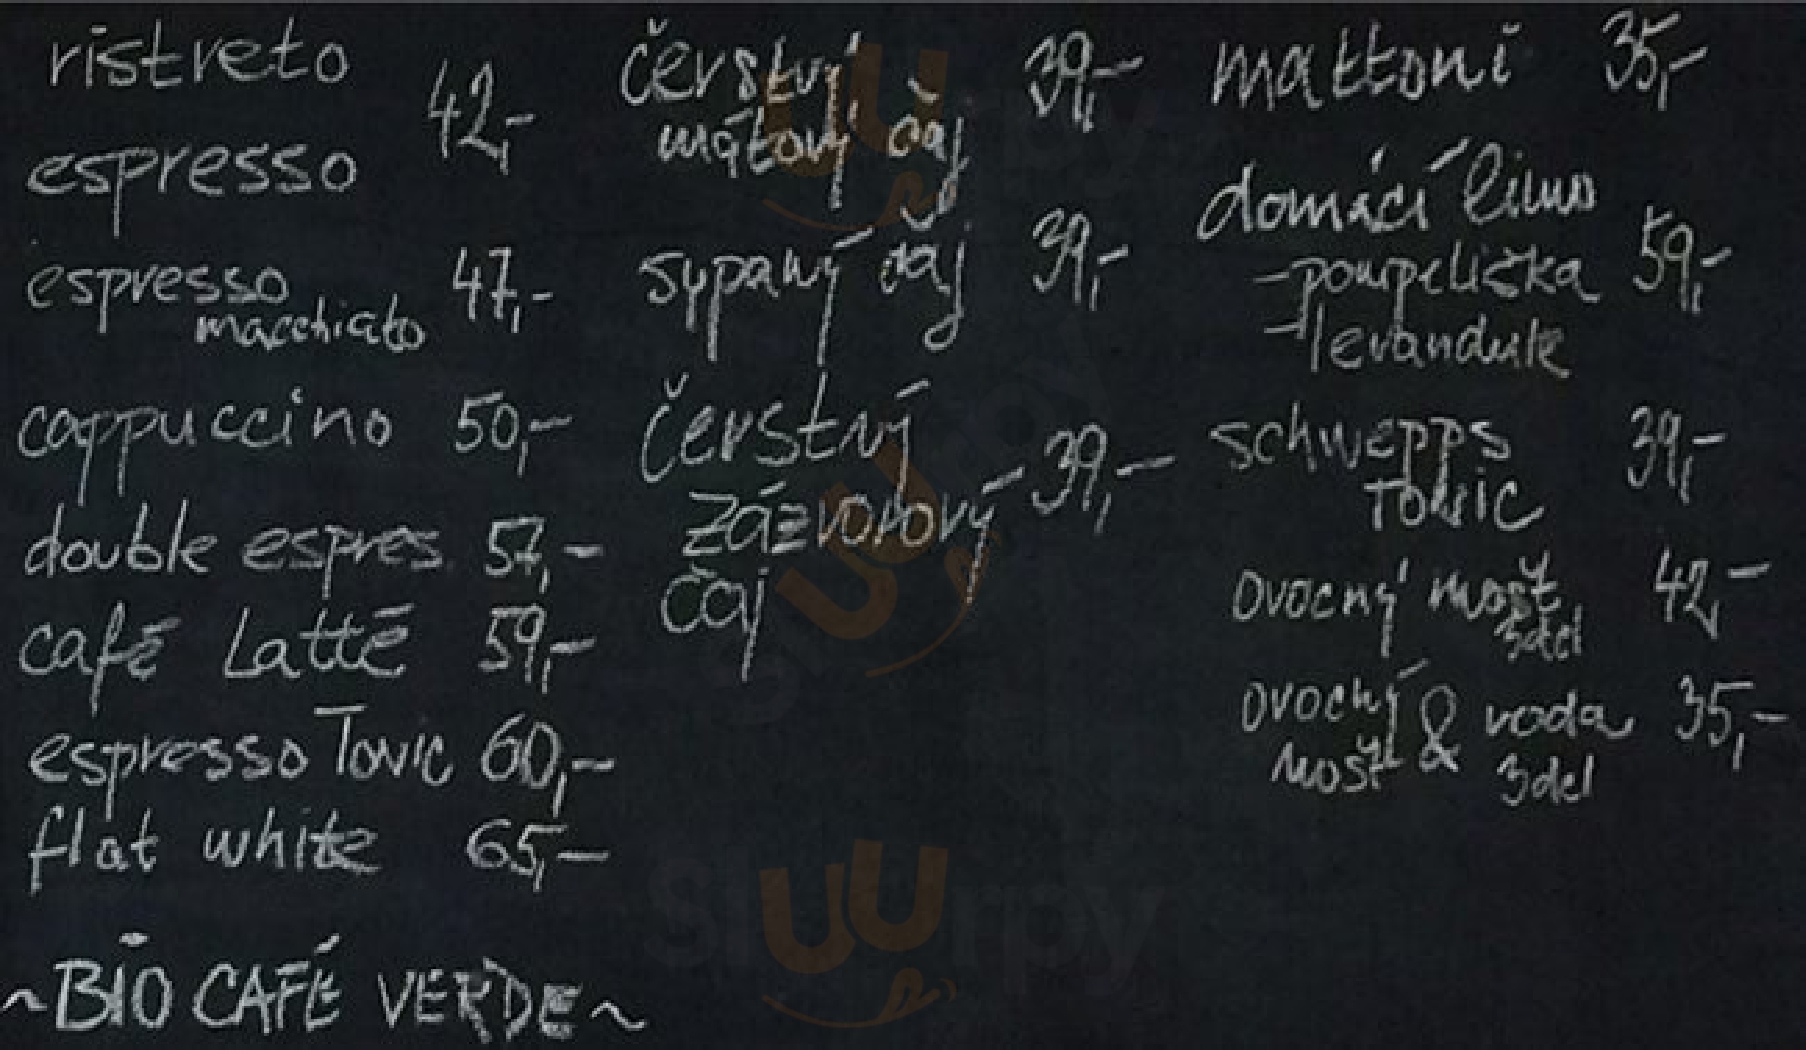 ristreto
42,-
espresso
espresso 47,-
macchiato
cappuccino 50,-
double espres. 57,-
café Latté 59,-
espresso Tonic 60,-
flat white 65,-
~BIO CAFÉ VERDE~
čerstvý 39,-
mátový čaj
sypaný čaj 39,-
čerstvý
zázvorový 39,-
čaj
mattoni 35,-
domácí limo
-pampeliška 59,-
-levandule
schwepps 39,-
Tonic
ovocný mošt 42,-
3del
ovocný & voda 35,-
mošt 3del
Sluurpy
Sluurpy
Sluurpy